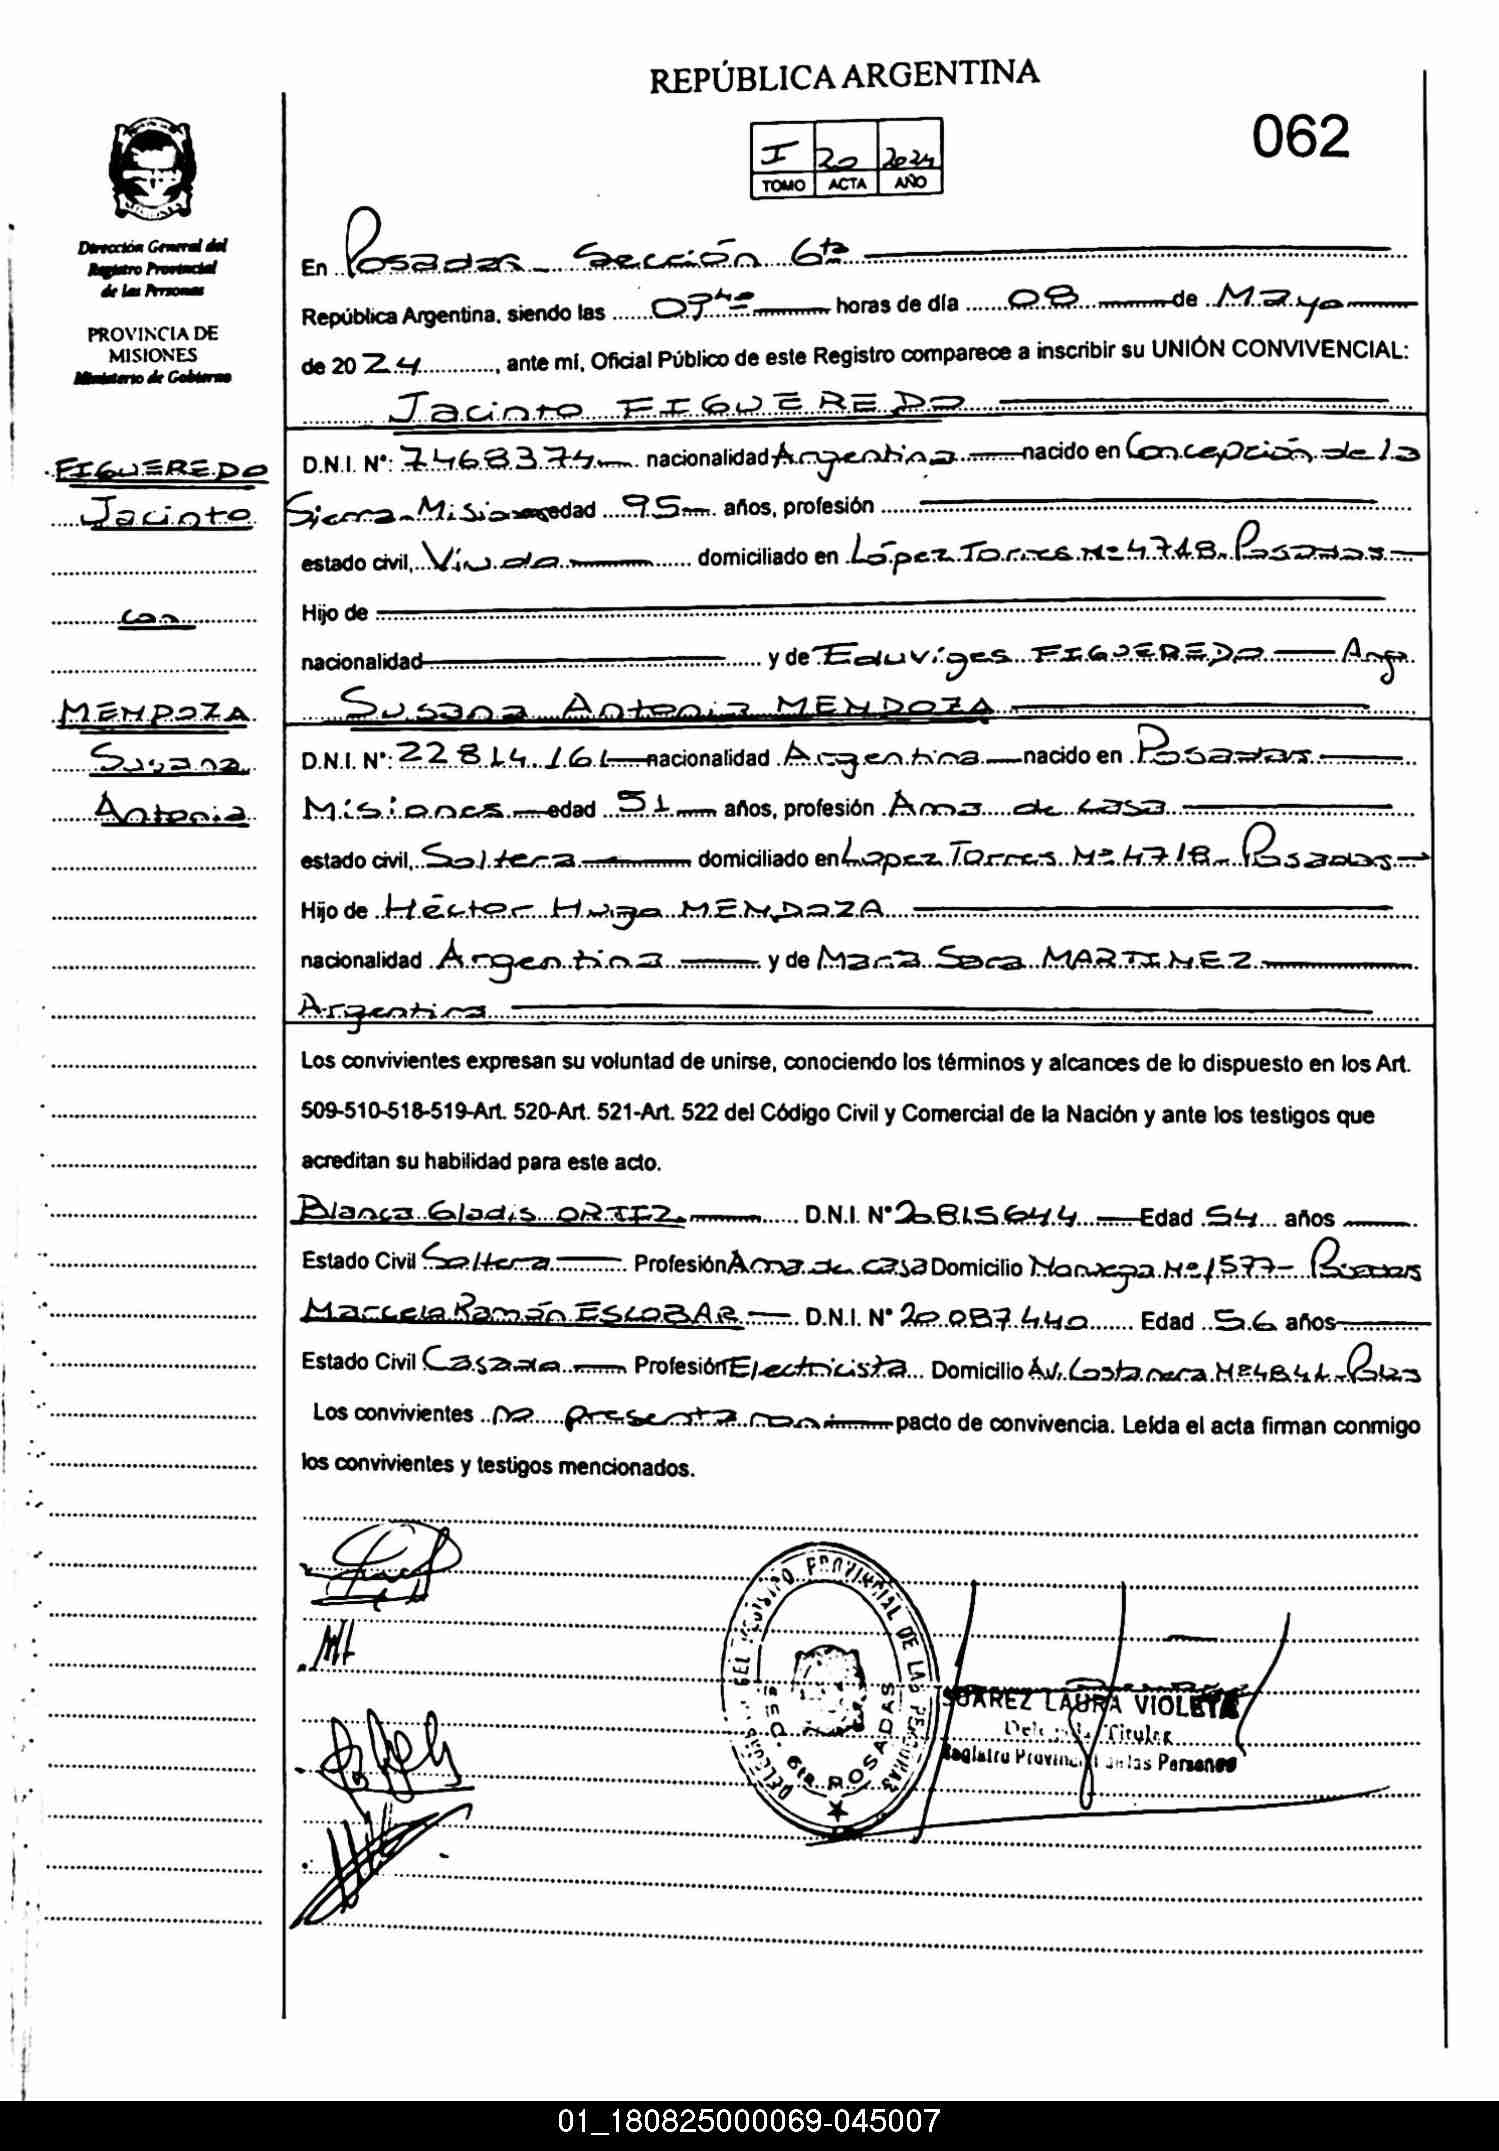 REPÚBLICA ARGENTINA
062
I 20 2024
TOMO ACTA AÑO
Dirección General del
Registro Provincial
de las Personas
PROVINCIA DE
MISIONES
Ministerio de Gobierno
FIGUEREDO
Jacinto
con
MENDOZA
Susana
Antonia
En Posadas - Sección 6ta
República Argentina, siendo las horas de día 08 de Mayo
de 2024, ante mí, Oficial Público de este Registro comparece a inscribir su UNIÓN CONVIVENCIAL:
Jacinto FIGUEREDO
D.N.I. N°: 7468374 nacionalidad Argentina nacido en Concepción de la
Sierra - Misiones edad 95 años, profesión
estado civil, Viudo domiciliado en López Torres N° 4718 - Posadas
Hijo de
nacionalidad y de Eduviges FIGUEREDO Arg.
Susana Antonia MENDOZA
D.N.I. N°: 22814.161 nacionalidad Argentina nacido en Posadas
Misiones edad 51 años, profesión Ama de casa
estado civil, Soltera domiciliado en Lopez Torres N° 4718 - Posadas
Hijo de Héctor Hugo MENDOZA
nacionalidad Argentina y de Sara MARTINEZ
Argentina
Los convivientes expresan su voluntad de unirse, conociendo los términos y alcances de lo dispuesto en los Art.
509-510-518-519-Art. 520-Art. 521-Art. 522 del Código Civil y Comercial de la Nación y ante los testigos que
acreditan su habilidad para este acto.
Blanca Gladis ORTIZ D.N.I. N° 20.815.644 Edad 54 años
Estado Civil Soltera Profesión Ama de casa Domicilio Noruega N° 1577 - Posadas
Ramón ESCOBAR D.N.I. N° 20.087.440 Edad 56 años
Estado Civil Casado Profesión Electricista Domicilio Av. Costanera N° 4841 -
Los convivientes no presentaron pacto de convivencia. Leída el acta firman conmigo
los convivientes y testigos mencionados.
DEL REGISTRO PROVINCIAL DE LAS PERSONAS
6ta POSADAS
SUAREZ LAURA VIOLETA
Titular
Registro Provincial de las Personas
01_180825000069-045007